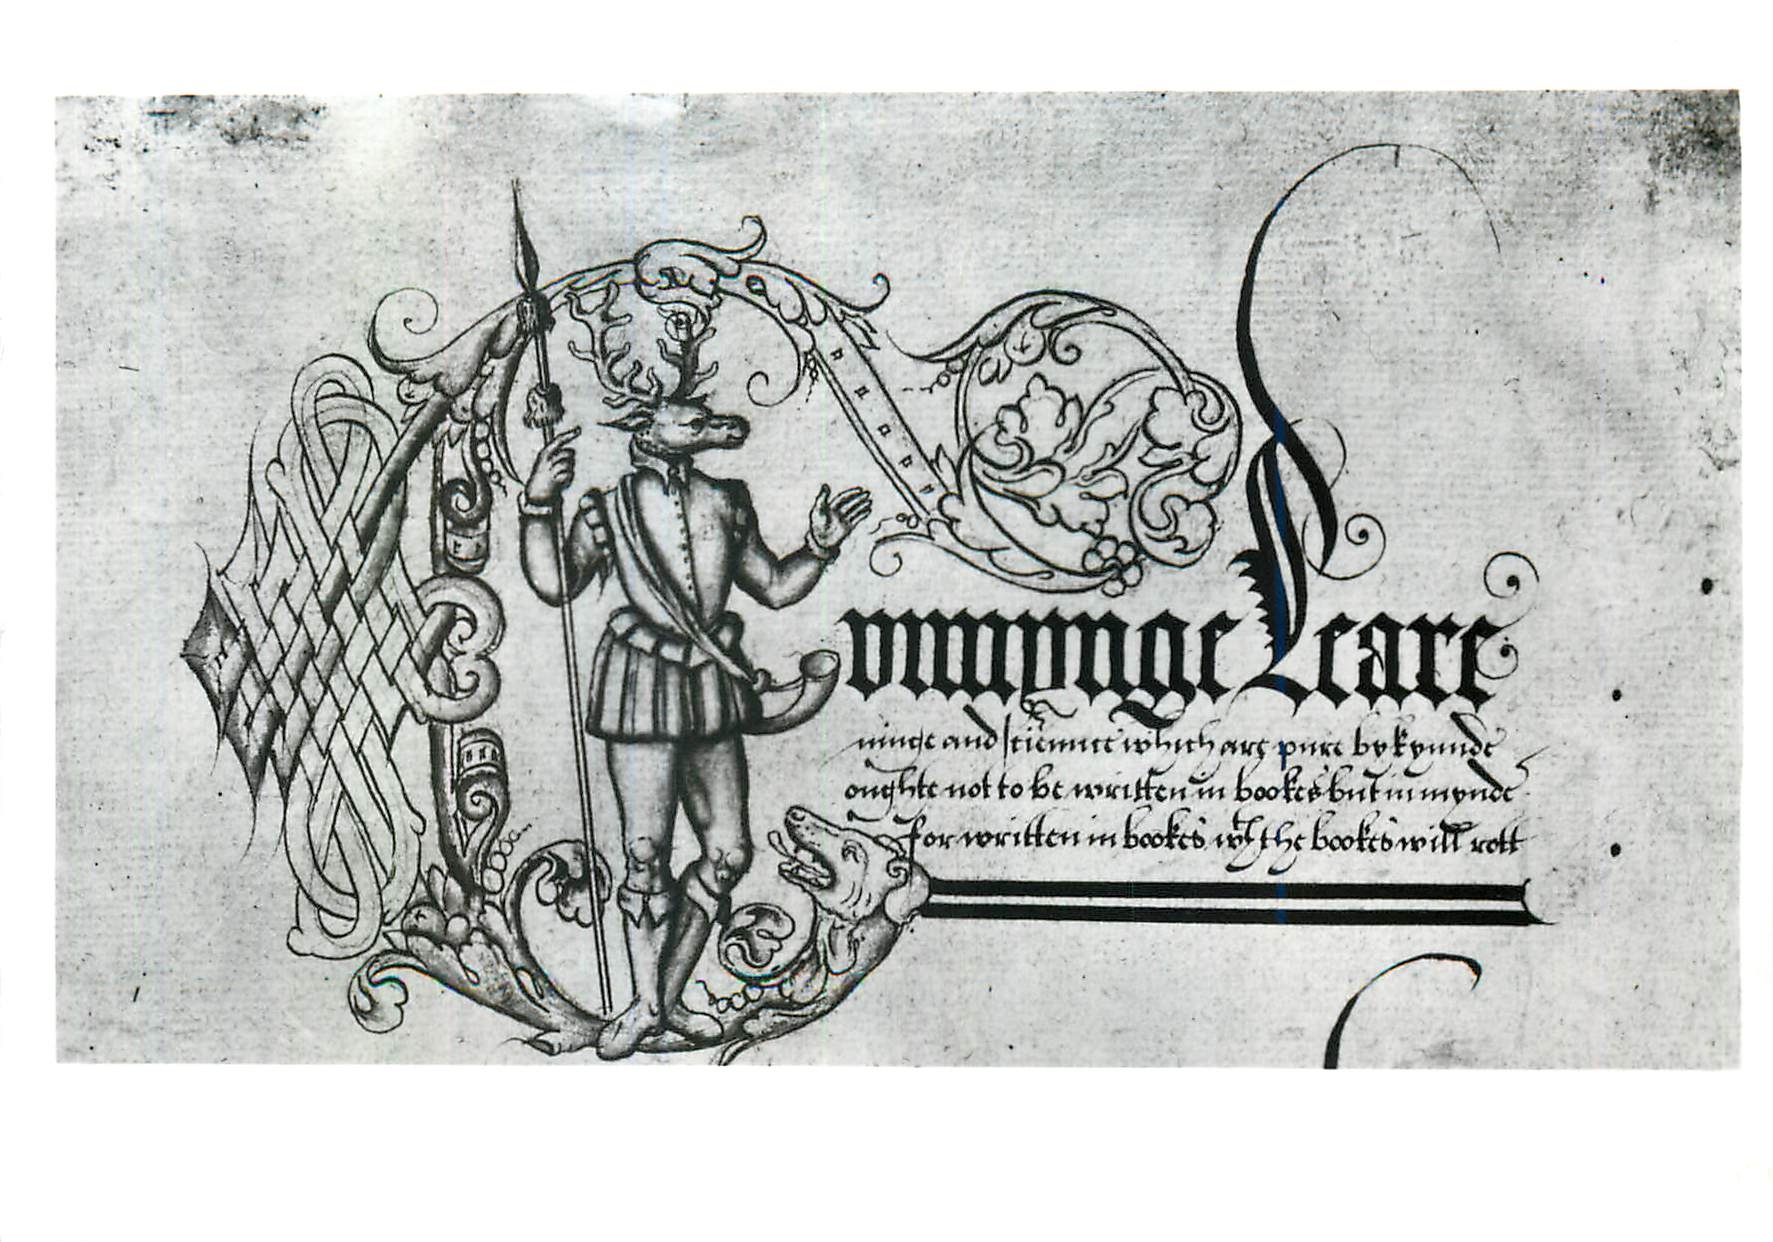 Cvnnynge Leare
ninge and sciennce which are pure by kynnde
oughte not to be written in bookes but in mynde
for written in bookes wth the bookes will rott